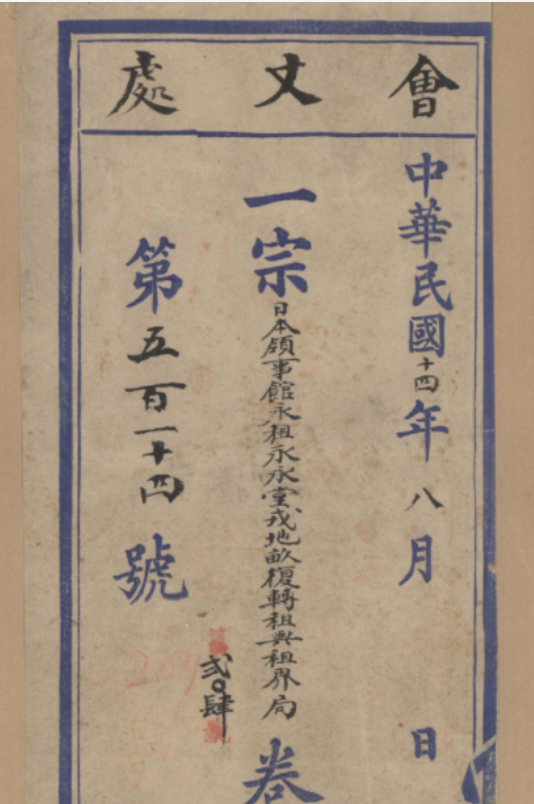 會丈處
中華民國十四年八月 日
一宗日本領事館永租永永堂戎地畝復轉租與租界局卷
弍〇肆
第五百一十四號